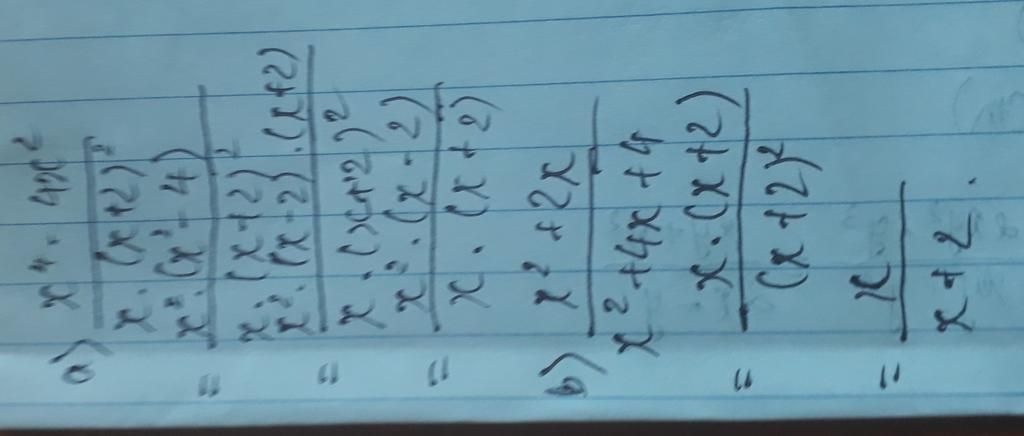 a) x⁴ - 4x²
x · (x+2)²
= x² · (x² - 4)
x · (x+2)²
= x² · (x-2) · (x+2)
x · (x+2)²
= x² · (x - 2)
x · (x + 2)
b) x² + 2x
x² + 4x + 4
= x · (x + 2)
(x + 2)²
= x
x + 2 .